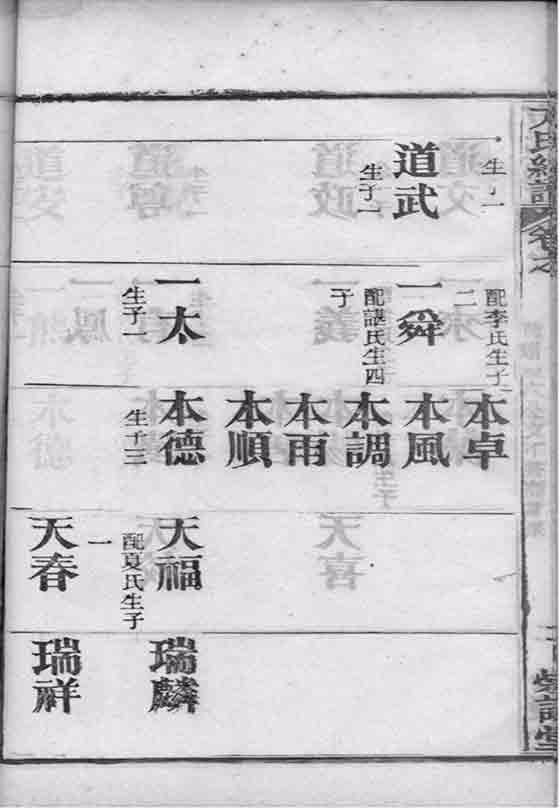 卷之
生子一
道武
生子一
配李氏生子
二
一舜
配諶氏生四
子
一太
生子一
本卓
本風
本調
本雨
本順
本德
生子三
天福
配夏氏生子
一
天春
瑞麟
瑞祥